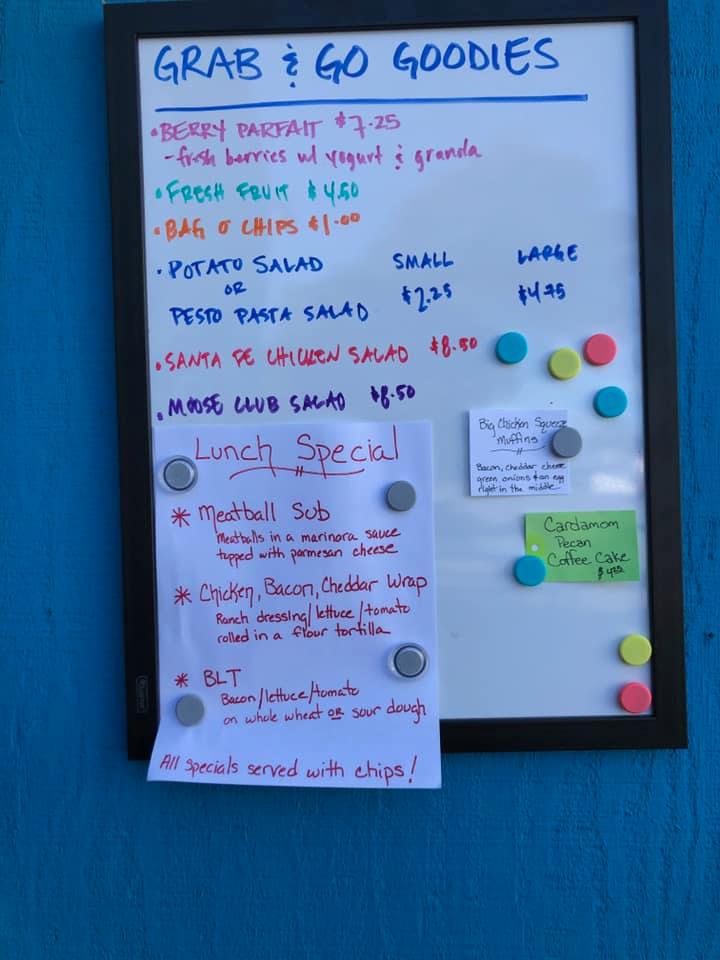 GRAB & GO GOODIES
• BERRY PARFAIT $7.25
- fresh berries w/ yogurt & granola
• FRESH FRUIT $4.50
• BAG O CHIPS $1.00
• POTATO SALAD SMALL LARGE
OR $2.25 $4.75
PESTO PASTA SALAD
• SANTA FE CHICKEN SALAD $8.50
• MOOSE CLUB SALAD $8.50
Lunch Special
* Meatball Sub
Meatballs in a marinora sauce
topped with parmesan cheese
* Chicken, Bacon, Cheddar Wrap
Ranch dressing/lettuce/tomato
rolled in a flour tortilla
* BLT
Bacon/lettuce/tomato
on whole wheat OR sour dough
All specials served with chips!
Big Chicken Squeeze
Muffins
Bacon, cheddar cheese
green onions & an egg
right in the middle
Cardamom
Pecan
Coffee Cake